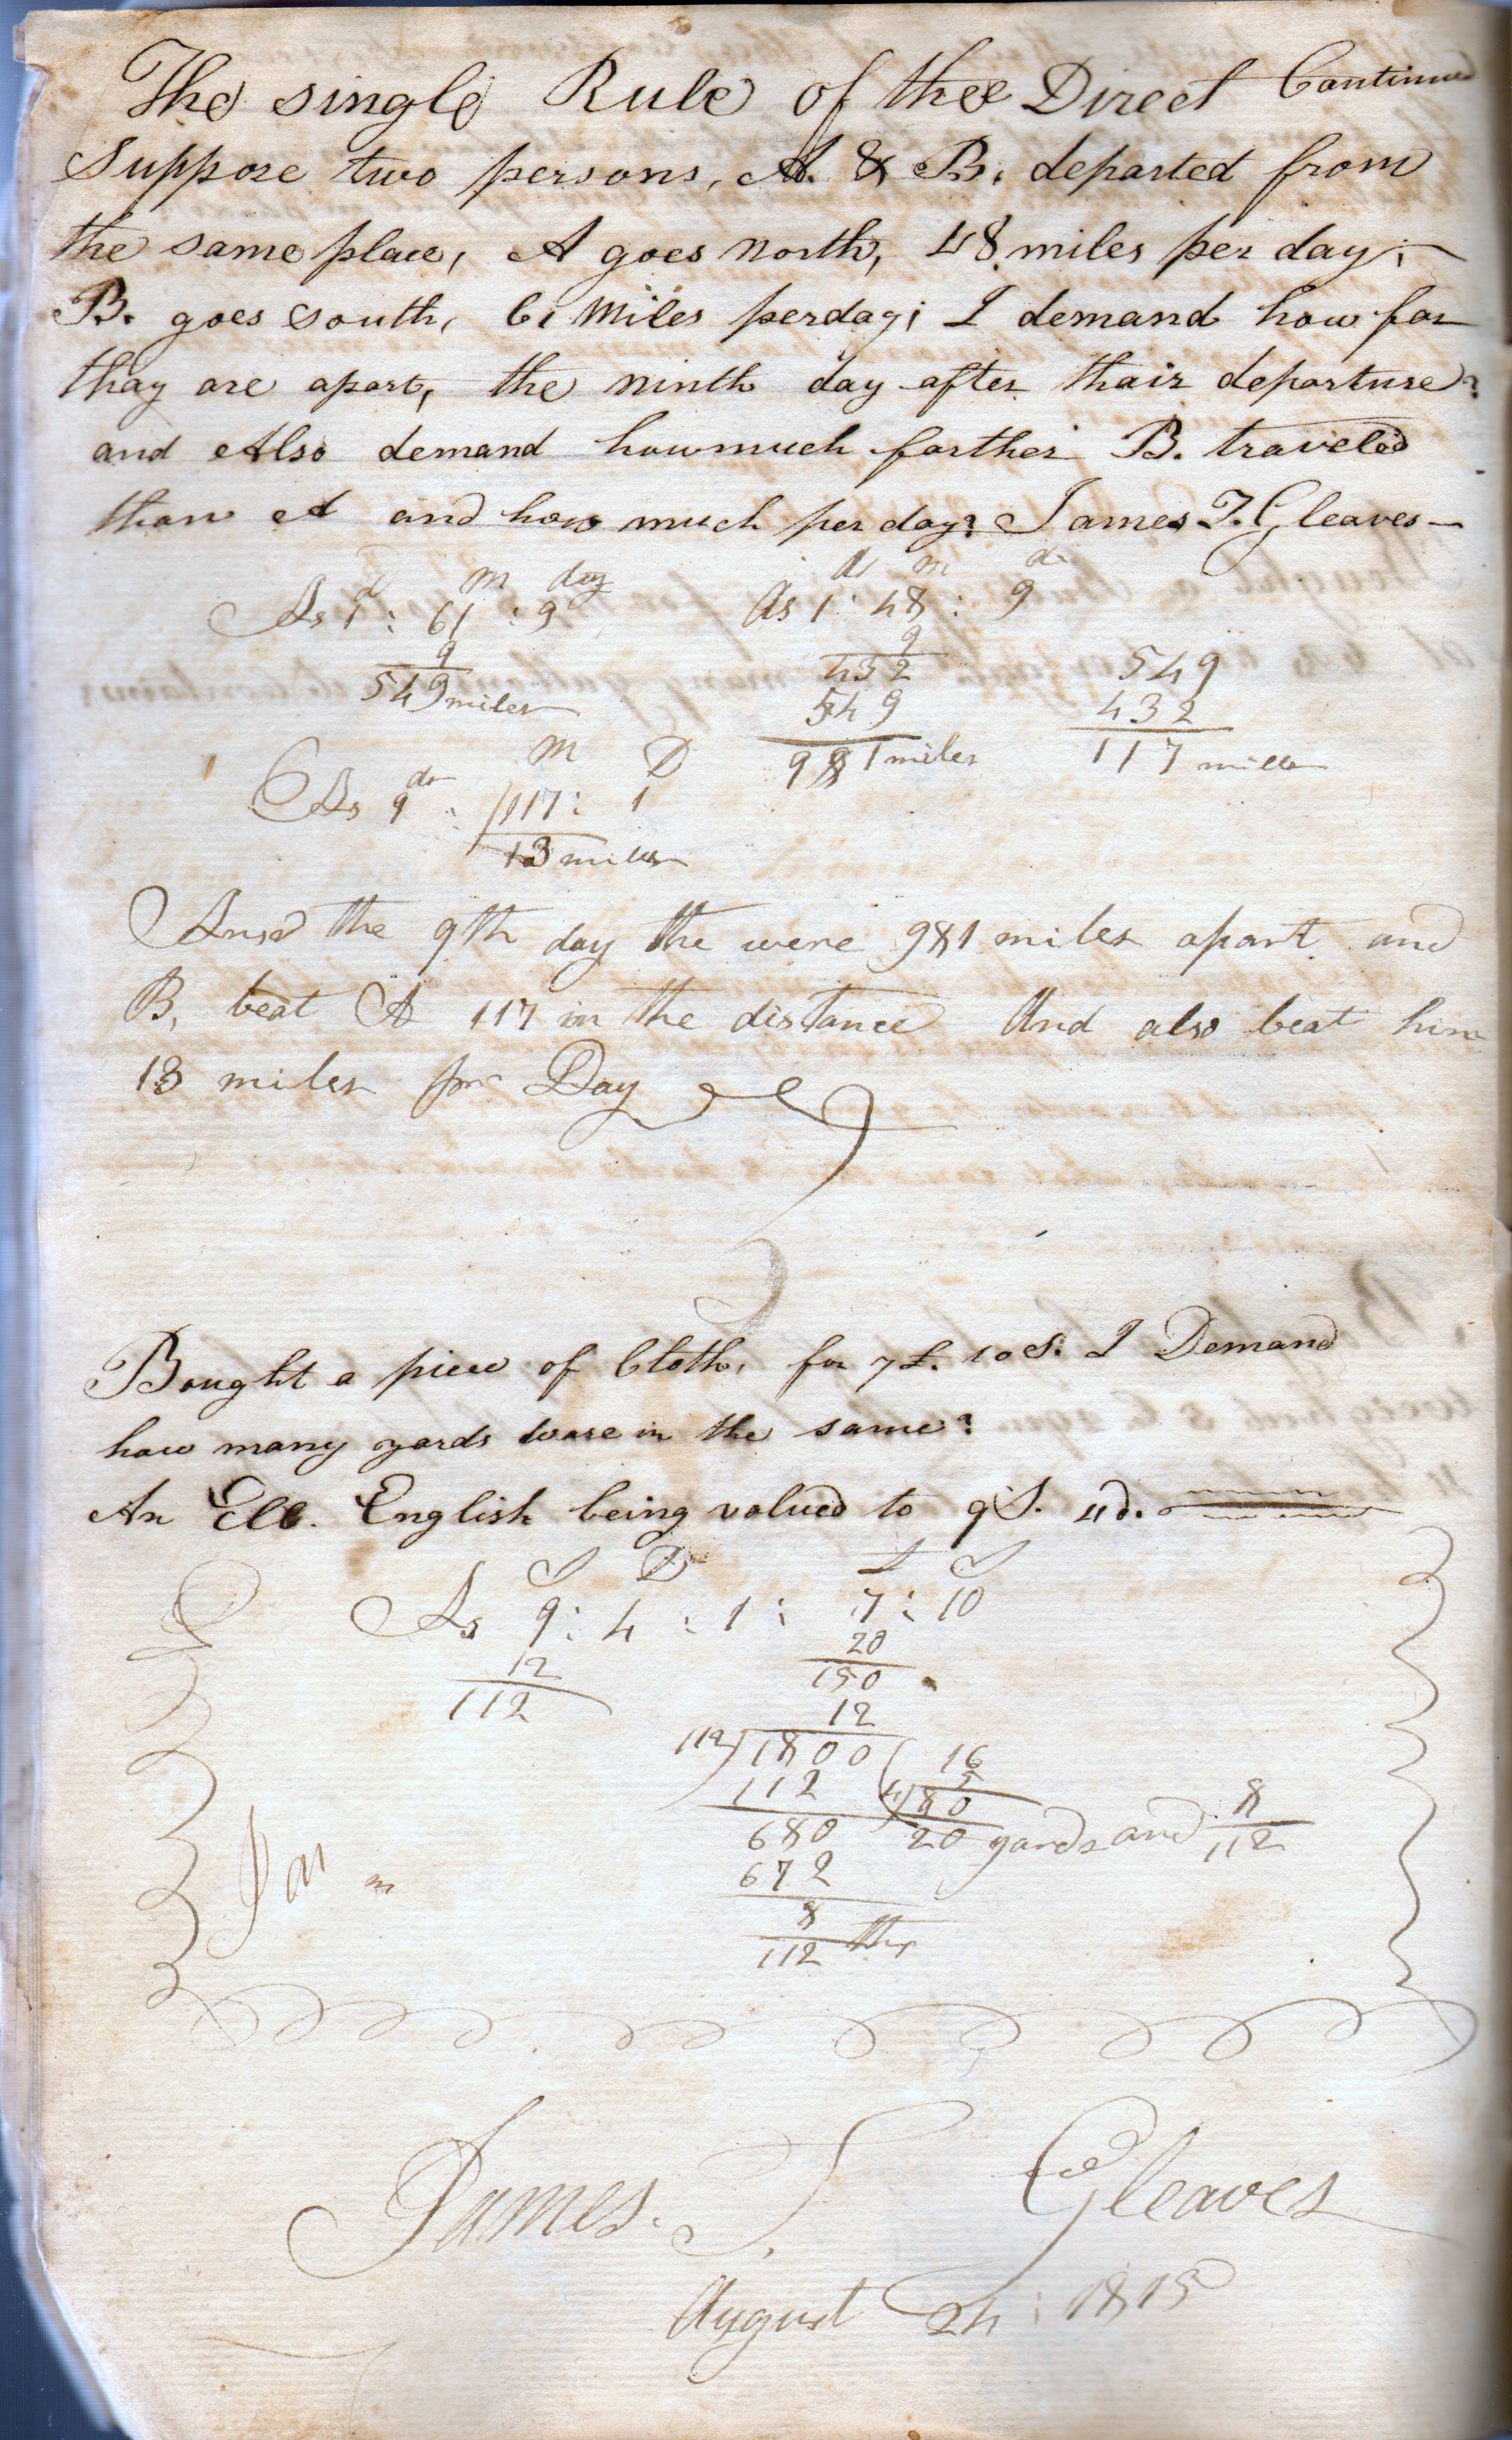 The single Rule of thee Direct Continued
Suppose two persons, A. & B. departed from
the same place, A goes north, 48 miles per day;
B. goes south, 61 Miles perday; I demand how far
thay are apart, the ninth day after thair departure?
and Also demand howmuch farther B. traveled
than A and how much per day? James T. Gleaves
d m day d m d
As 1 : 61 : 9 As 1 : 48 : 9
9 9
549 miles 432 549
549 432
981 miles 117 miles
do M D
As 9 : 117 : 1
13 miles
Ansd the 9th day the were 981 miles apart and
B, beat A 117 in the distance And also beat him
13 miles pr Day
Bought a piece of Cloth, for 7£. 10S. I Demand
how many yards ware in the same?
An Ell. English being valued to 9S. 4d.
S D £ S
As 9 : 4 : 1 : 7 : 10
12 20
112 150
12
112) 1800 ( 16
112 5
680 4) 80
672 20 yards and 8/112
8
112 ths
James. T. Gleaves
August 24 : 1815